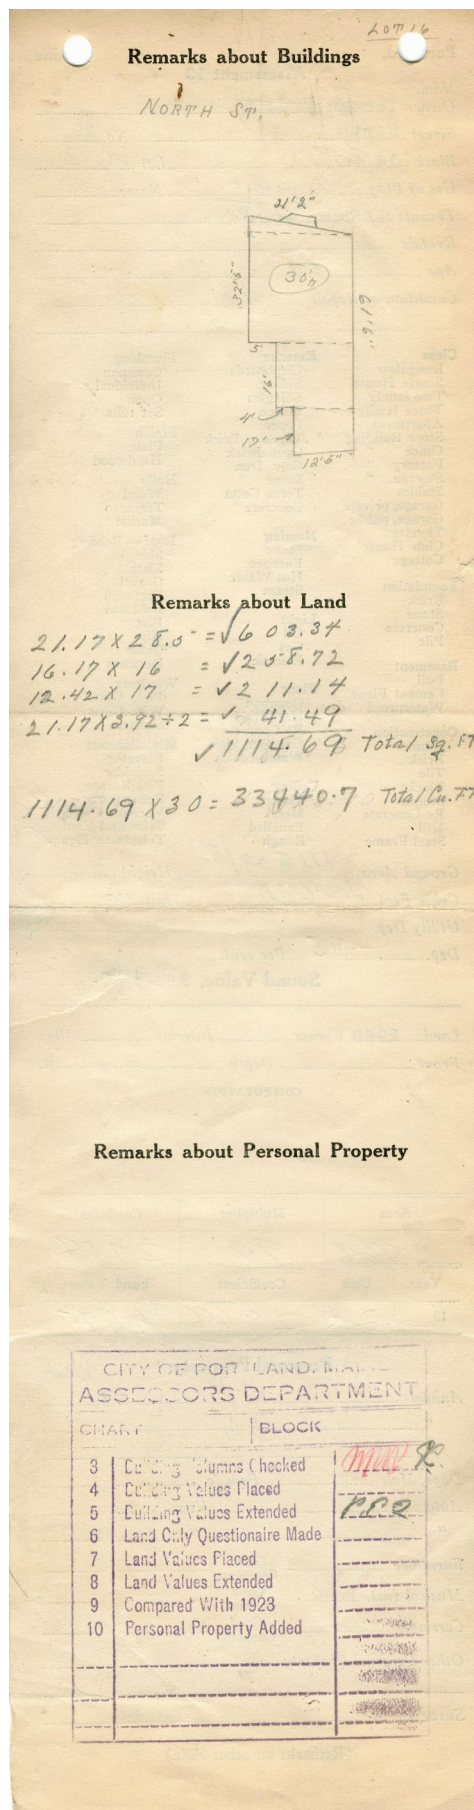 LOT 16
Remarks about Buildings
NORTH ST.
21'2"
32'5"
30'h
61'9"
5'
16'
4'
17'
12'5"
Remarks about Land
21.17 X 28.5 = √ 603.34
16.17 X 16 = √ 258.72
12.42 X 17 = √ 211.14
21.17 X 3.92 ÷ 2 = √ 41.49
√ 1114.69 Total Sq. FT
1114.69 X 30 = 33440.7 Total Cu. FT
Remarks about Personal Property
CITY OF PORTLAND, MAINE
ASSESSORS DEPARTMENT
CHART BLOCK
3 Building Columns Checked
4 Building Values Placed
5 Building Values Extended
6 Land Only Questionaire Made
7 Land Values Placed
8 Land Values Extended
9 Compared With 1923
10 Personal Property Added